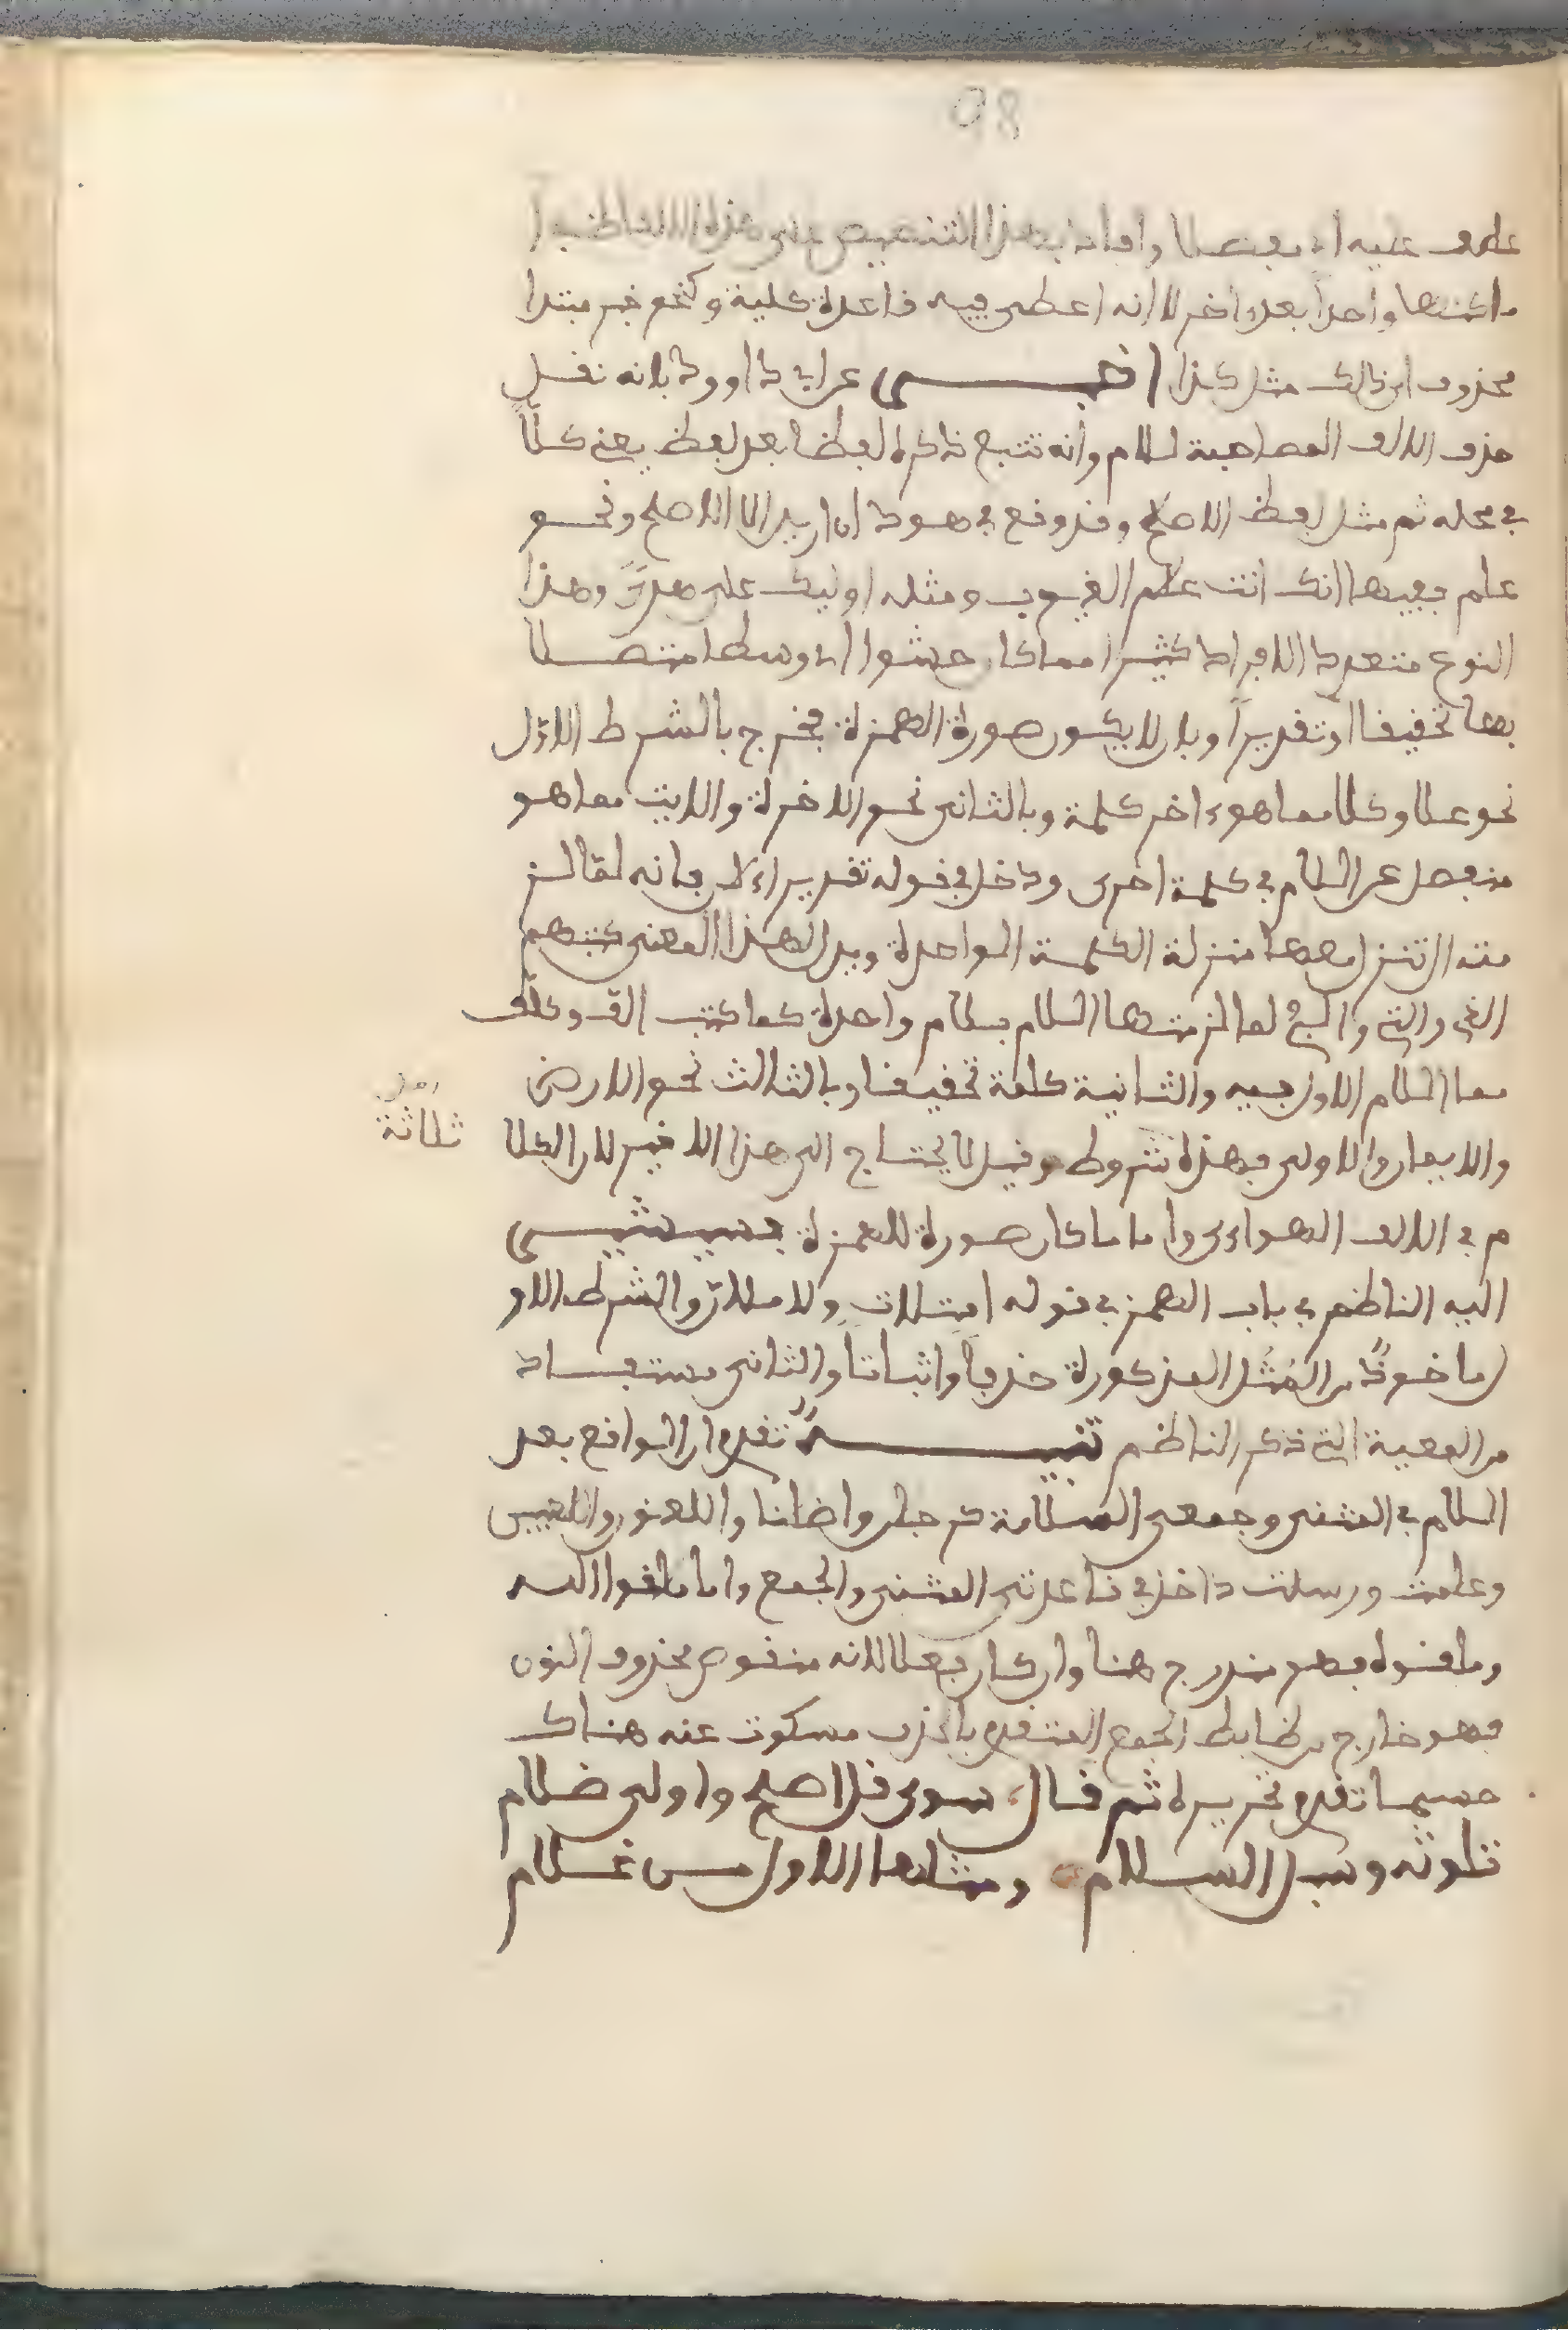 98
عطف عليه اي بعضلا وافاد بهذا التنصيص على هذه الالفاظ
ما كتبها واحدا بعد اخر لا انه اعطى فيه فاعدة كلية وكخم خبر مبتدا
محذوف اي ذالك مثل كذا اخبــــى عن ابي داوود بانه نفل
حذف الالف المصاحبة للام وانه تتبع ذكره لفظا بعد لفظ يعني كلا
في محله ثم مثل بلفظ الاصلح وفد وفع في هود ان اريد الا الاصلح ونحو
علم بغيبها انك انت علم الغيوب ومثله اوليك على هدى وهذا
النوع متعدد الافراد كثير مما كان حشوا اي وسطا متصلا
بها تحفيفا او تفديرا وبان لا يكون صورة الهمزة فخرج بالشرط الاول
نحو علا وكلا مما هو ءاخر كلمة وبالثاني نحو الاخرة والايت مما هو
منفصل عن اللام في كلمة اخرى ودخل في فوله تفديرا ءلن فانه لما لز
مته ال تنزل معها منزلة الكلمة الواحدة ويدل لهذا المعنى كتبهم
الذي والتي والئ لما لزمتها اللام بلام واحدة كما كتب الف وكلف
مما اللام الاول فيه والثانية كلمة تحفيفا وبالثالث نحو الارض
والايمان والاولى فهذه شروط وفيل لا يحتاج الى هذا الاخير لان الكلا
ثلاثة
م في الالف الهواءي واما ما كان صورة للهمزة فسيشيــى
اليه الناظم في باب الهمز في فوله امتلات ولاملان والشرط الاو
ل ماخوذ من المثل المذكورة حذفا واثباتا والثاني مستفاد
من المعية التي ذكر الناظم تنبيــــه تفدم ان الوافع بعد
اللام في المثنى وجمعي السلامة كرجلن واضلنا واللعنون واللعبين
وعلمت ورسلت داخل في فاعدتي المثنى والجمع واما ملفوا الله
وملفوه فهو مندرج هنا وان كان جمعا لانه منفوص محذوف النون
فهو خارج من ضابط الجمع المتفدم بالحذف مسكوت عنه هناك
حسبما تفدم تحريره ثم فال سوى فل اصلح واولى ضلام
تلوته وسبل السلام ومثلها الاول من غلام